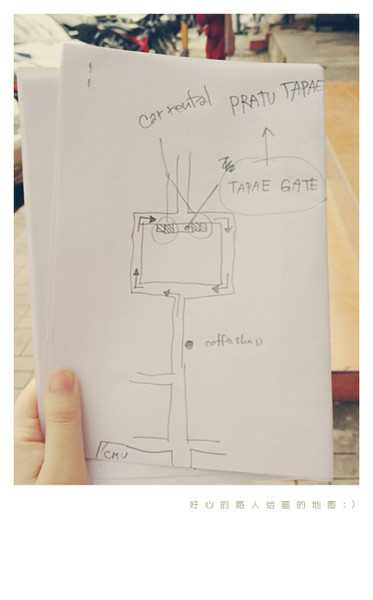 car rental
PRATU TAPAE
TAPAE GATE
coffeshop
CMU
好心的路人给画的地图:)